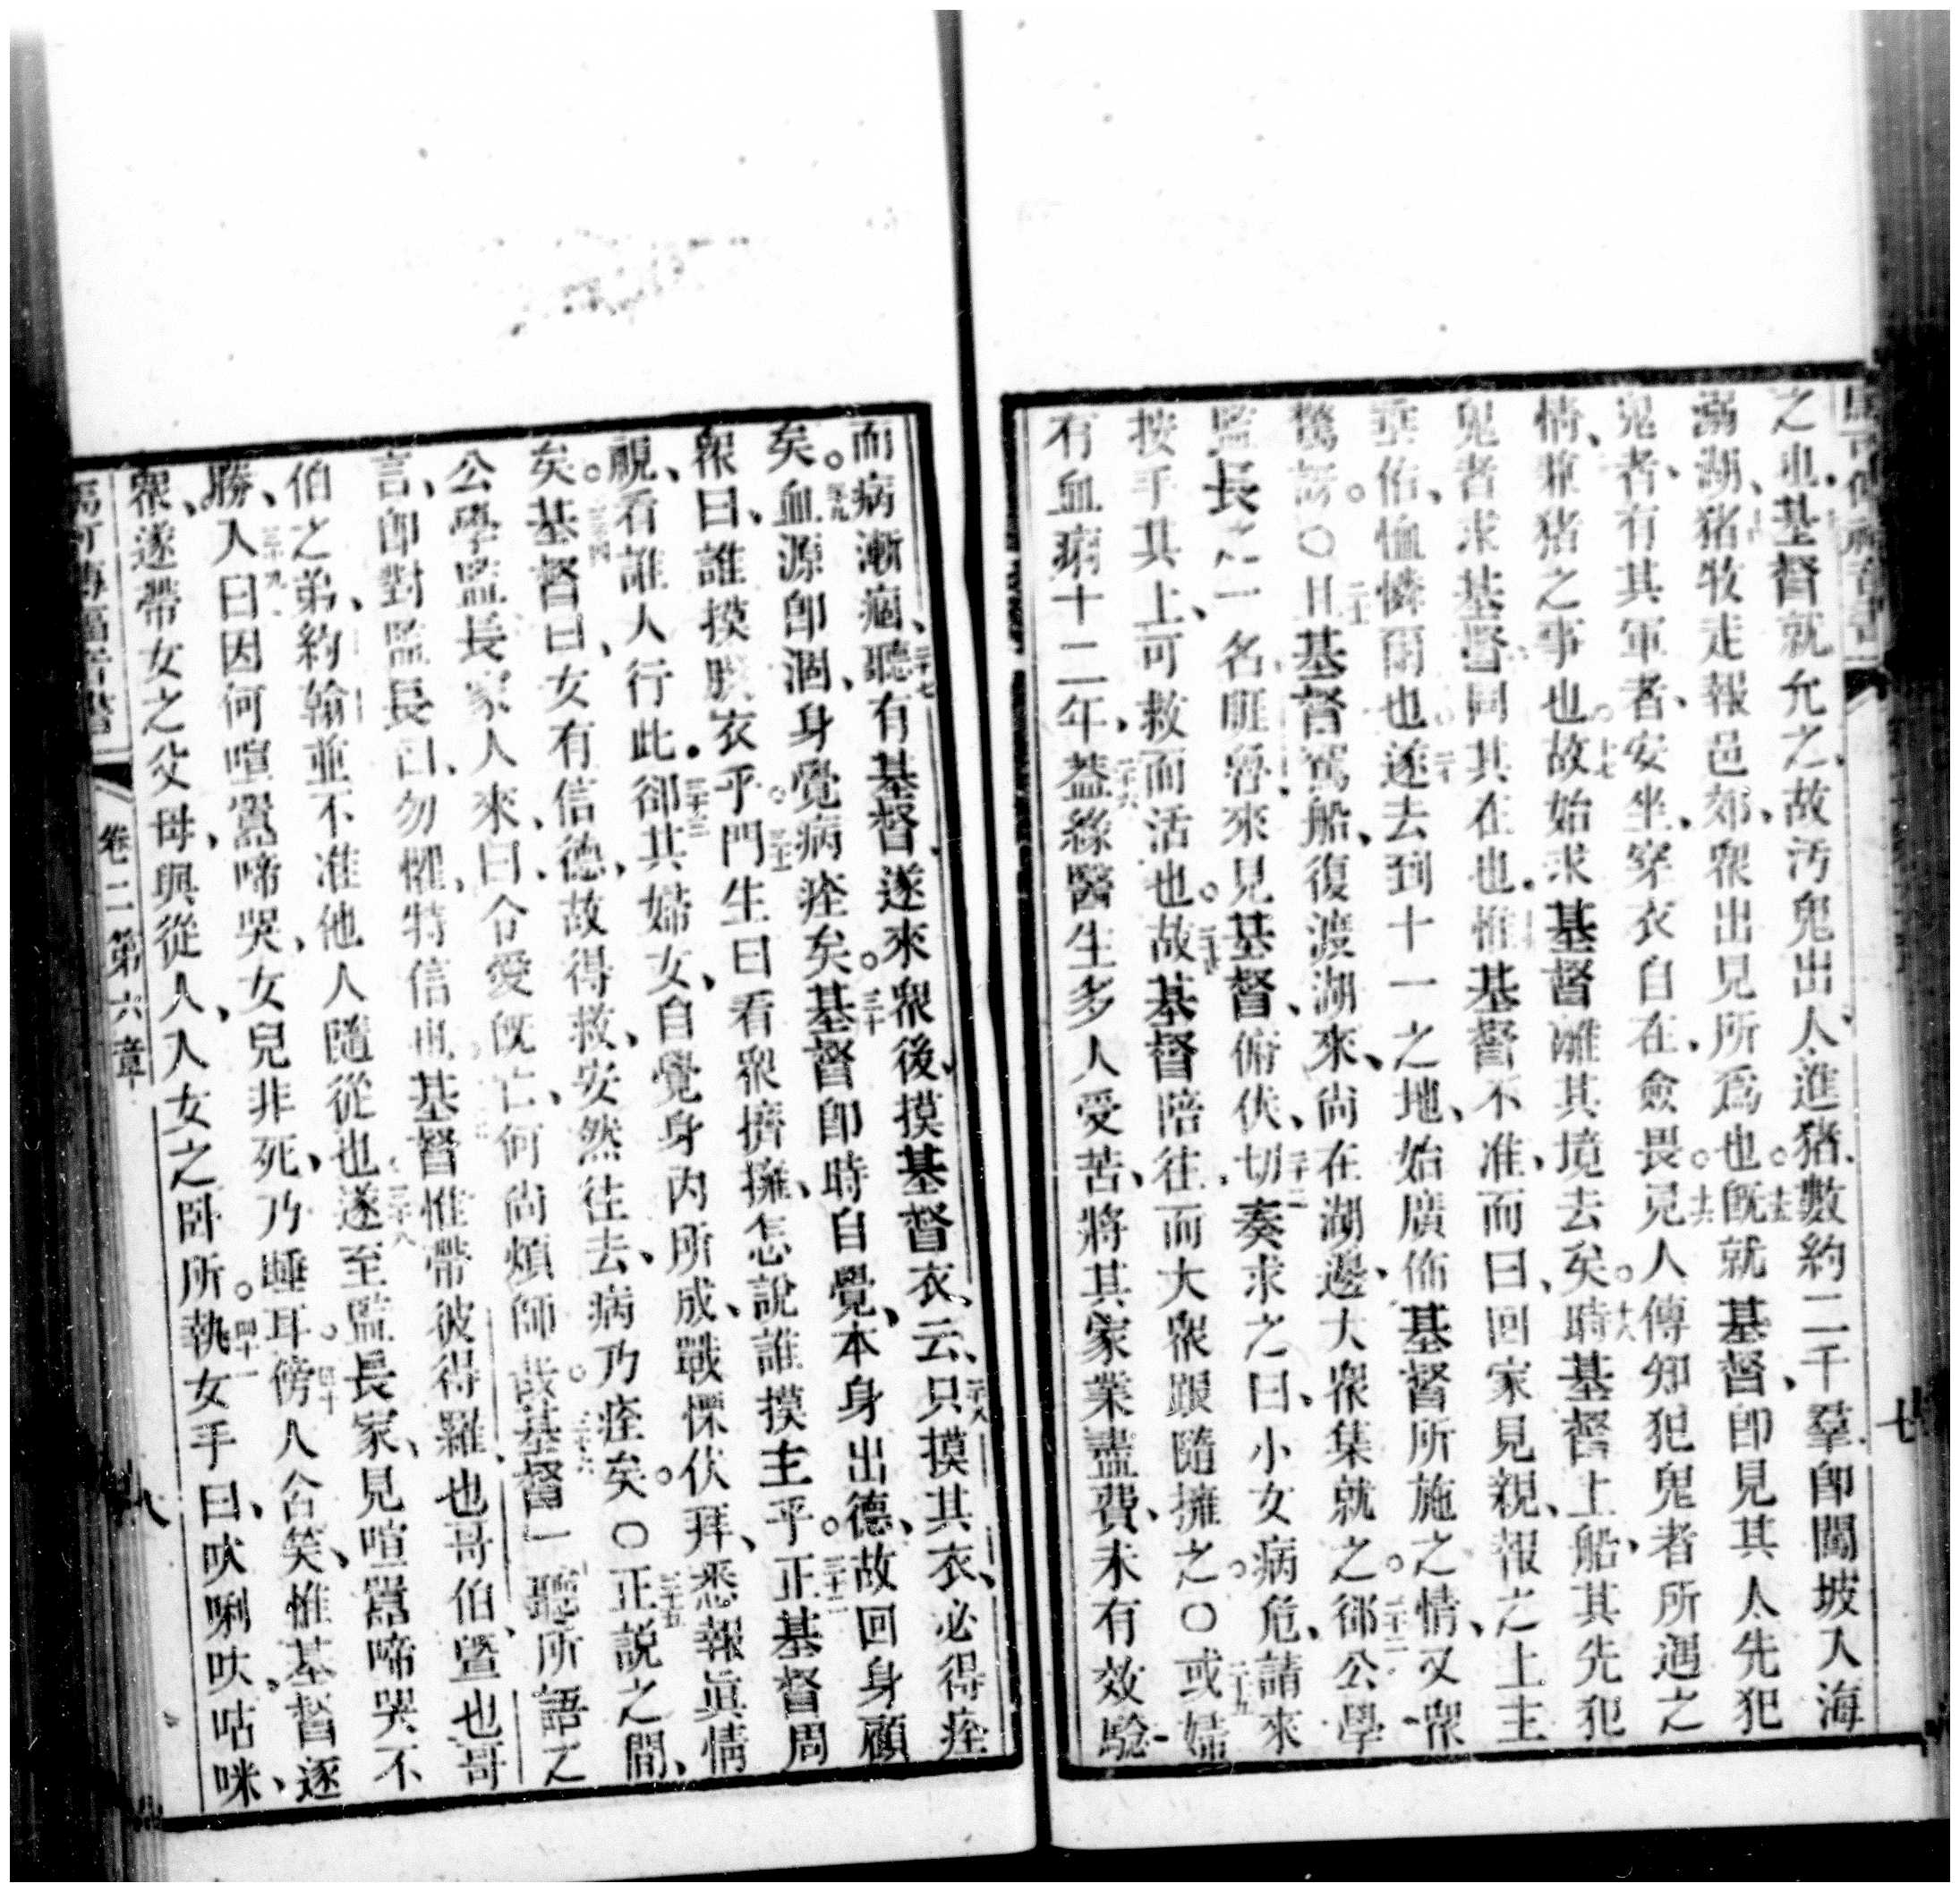 之也、基督就允之、故汚鬼出人、進猪、數約二千羣、卽闖坡入海
溺湖、猪牧走報邑郊、衆出見所爲也。十五旣就基督、卽見其人先犯
鬼者、有其軍者、安坐、穿衣自在、僉畏。十六見人傳知犯鬼者所遇之
情、兼猪之事也。十七故始求基督離其境去矣。十八時基督上船、其先犯
鬼者求基督同其在也。惟基督不准、而曰、回家見親、報之上主
垂佑、恤憐爾也。二十遂去到十一之地、始廣佈基督所施之情、又衆
驚訝。〇二十一且基督駕船、復渡湖來、尙在湖邊、大衆集就之。二十二郤公學
監長之一名睚魯、來見基督、俯伏、二十三切奏求之曰、小女病危、請來
按手其上、可救而活也。二十四故基督陪往、而大衆跟隨擁之。〇二十五或婦
有血病十二年、二十六葢緣醫生多人受苦、將其家業盡費、未有效驗
而病漸痼、二十七聽有基督、遂來衆後、摸基督衣、二十八云、只摸其衣、必得痊
矣。二十九血源卽涸、身覺病痊矣。三十基督卽時自覺、本身出德、故回身顧
衆曰、誰摸朕衣乎。三十一門生曰、看衆擠擁、怎說誰摸主乎。三十二正基督周
覗、看誰人行此。三十三郤其婦女、自覺身內所成、戰慄伏拜、悉報眞情
矣。三十四基督曰、女有信德、故得救、安然往去、病乃痊矣。〇三十五正說之間、
公學監長家人來、曰、令愛旣亡、何尙煩師。三十六故基督一聽所語之
言、卽對監長曰、勿懼、特信也。基督惟帶彼得羅、也哥伯、曁也哥
伯之弟、約翰、並不准他人隨從也。三十八遂至監長家、見喧嚚啼哭不
勝、三十九入曰、因何喧嚚啼哭、女兒非死、乃睡耳。四十傍人含笑、惟基督逐
衆、遂帶女之父母、與從人、入女之臥所。四十一執女手曰、呔唎呔咕咪、
卷二 第六章
七
八